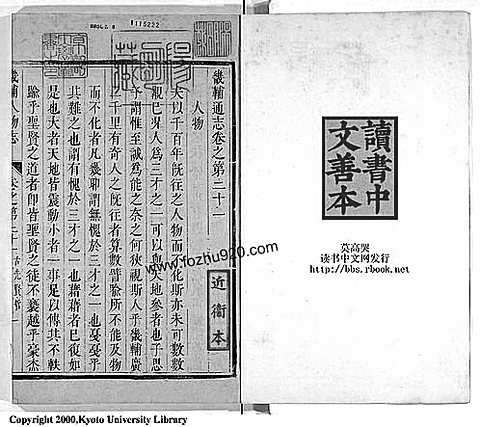 畿輔通志卷之第二十一
人物
夫以千百年既往之人物而不化斯亦未可數數
覯已況人爲三才之一可以與天地參者也子思
子謂惟至誠爲能之奈之何狹視斯人乎畿輔廣
二千里有奇人之既往者算數譬喻所不能及物
而不化者凡幾聊謂無愧於三才之一也戞戞乎
其難之也謂有愧於三才之一也藉藉者已復如
是也大者天地皆震動小者一事足以傳其不軼
踰乎聖賢之道者卽皆聖賢之徒不褻越乎豪杰
畿輔人物志
卷之第二十一
近衞本
115222
www.fozhu920.com
讀書中
文善本
读书中文网发行
http://bbs.rbook.net
Copyright 2000,Kyoto University Library